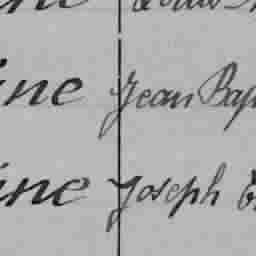 ine Jean Bap
ine Joseph E